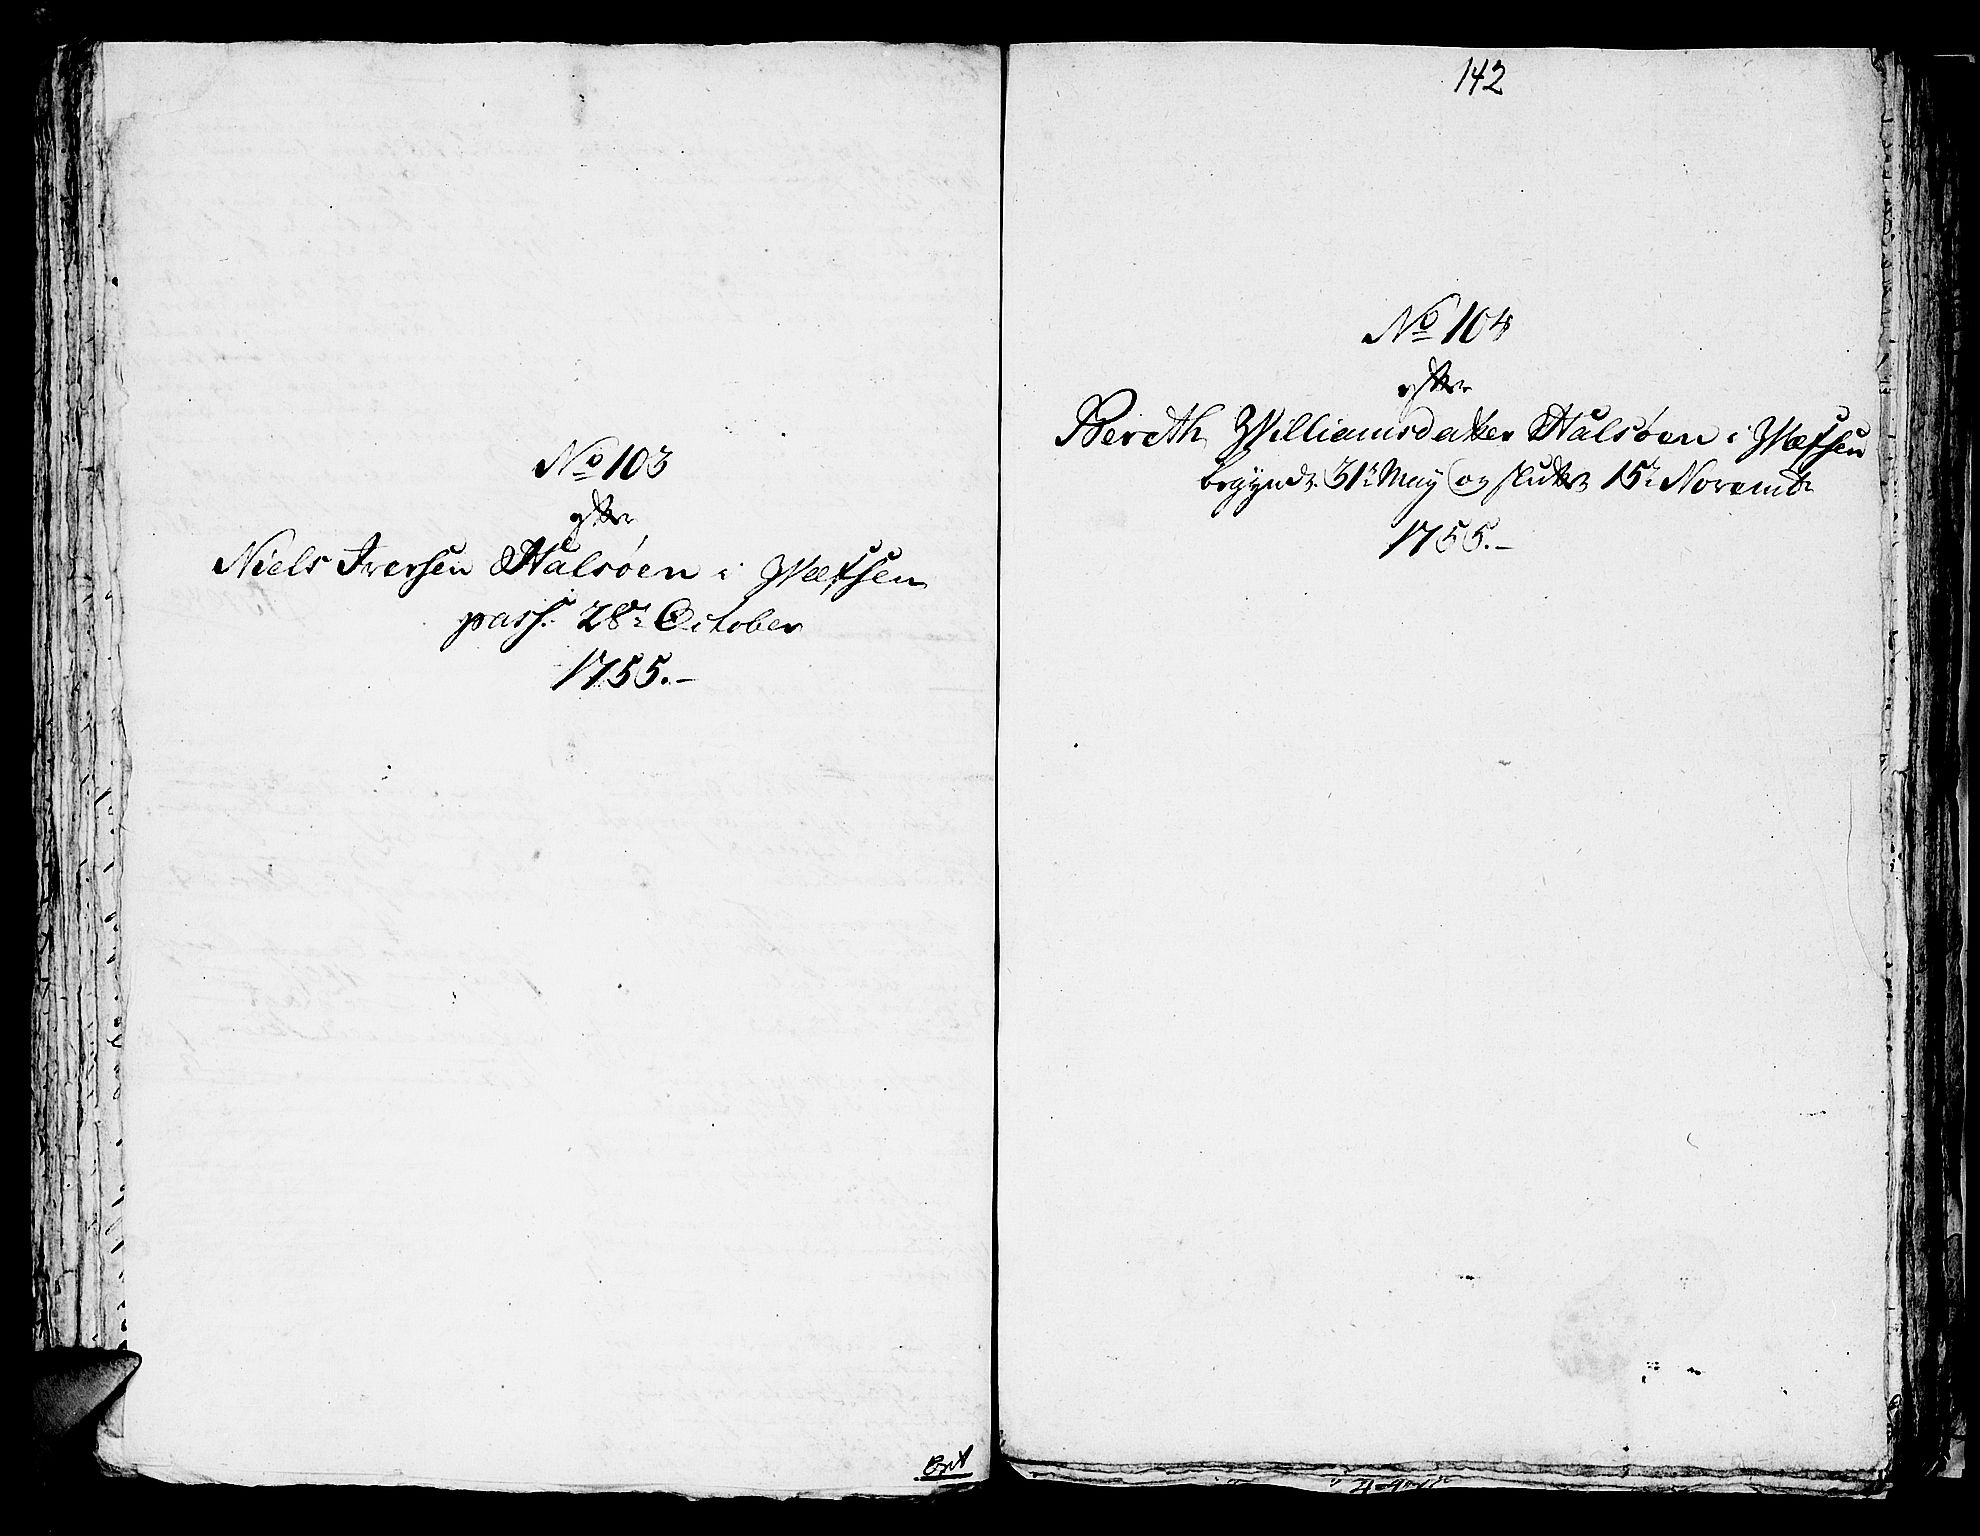 No 103
efter
Niels Iversen Halsøen i Wefsen
pass. 28de October
1755.-
142
No 104
efter
Bereth Williamsdatter Halsøen i Wefsen
begyndt 31te May og slutet 15de Novembr
1755.-